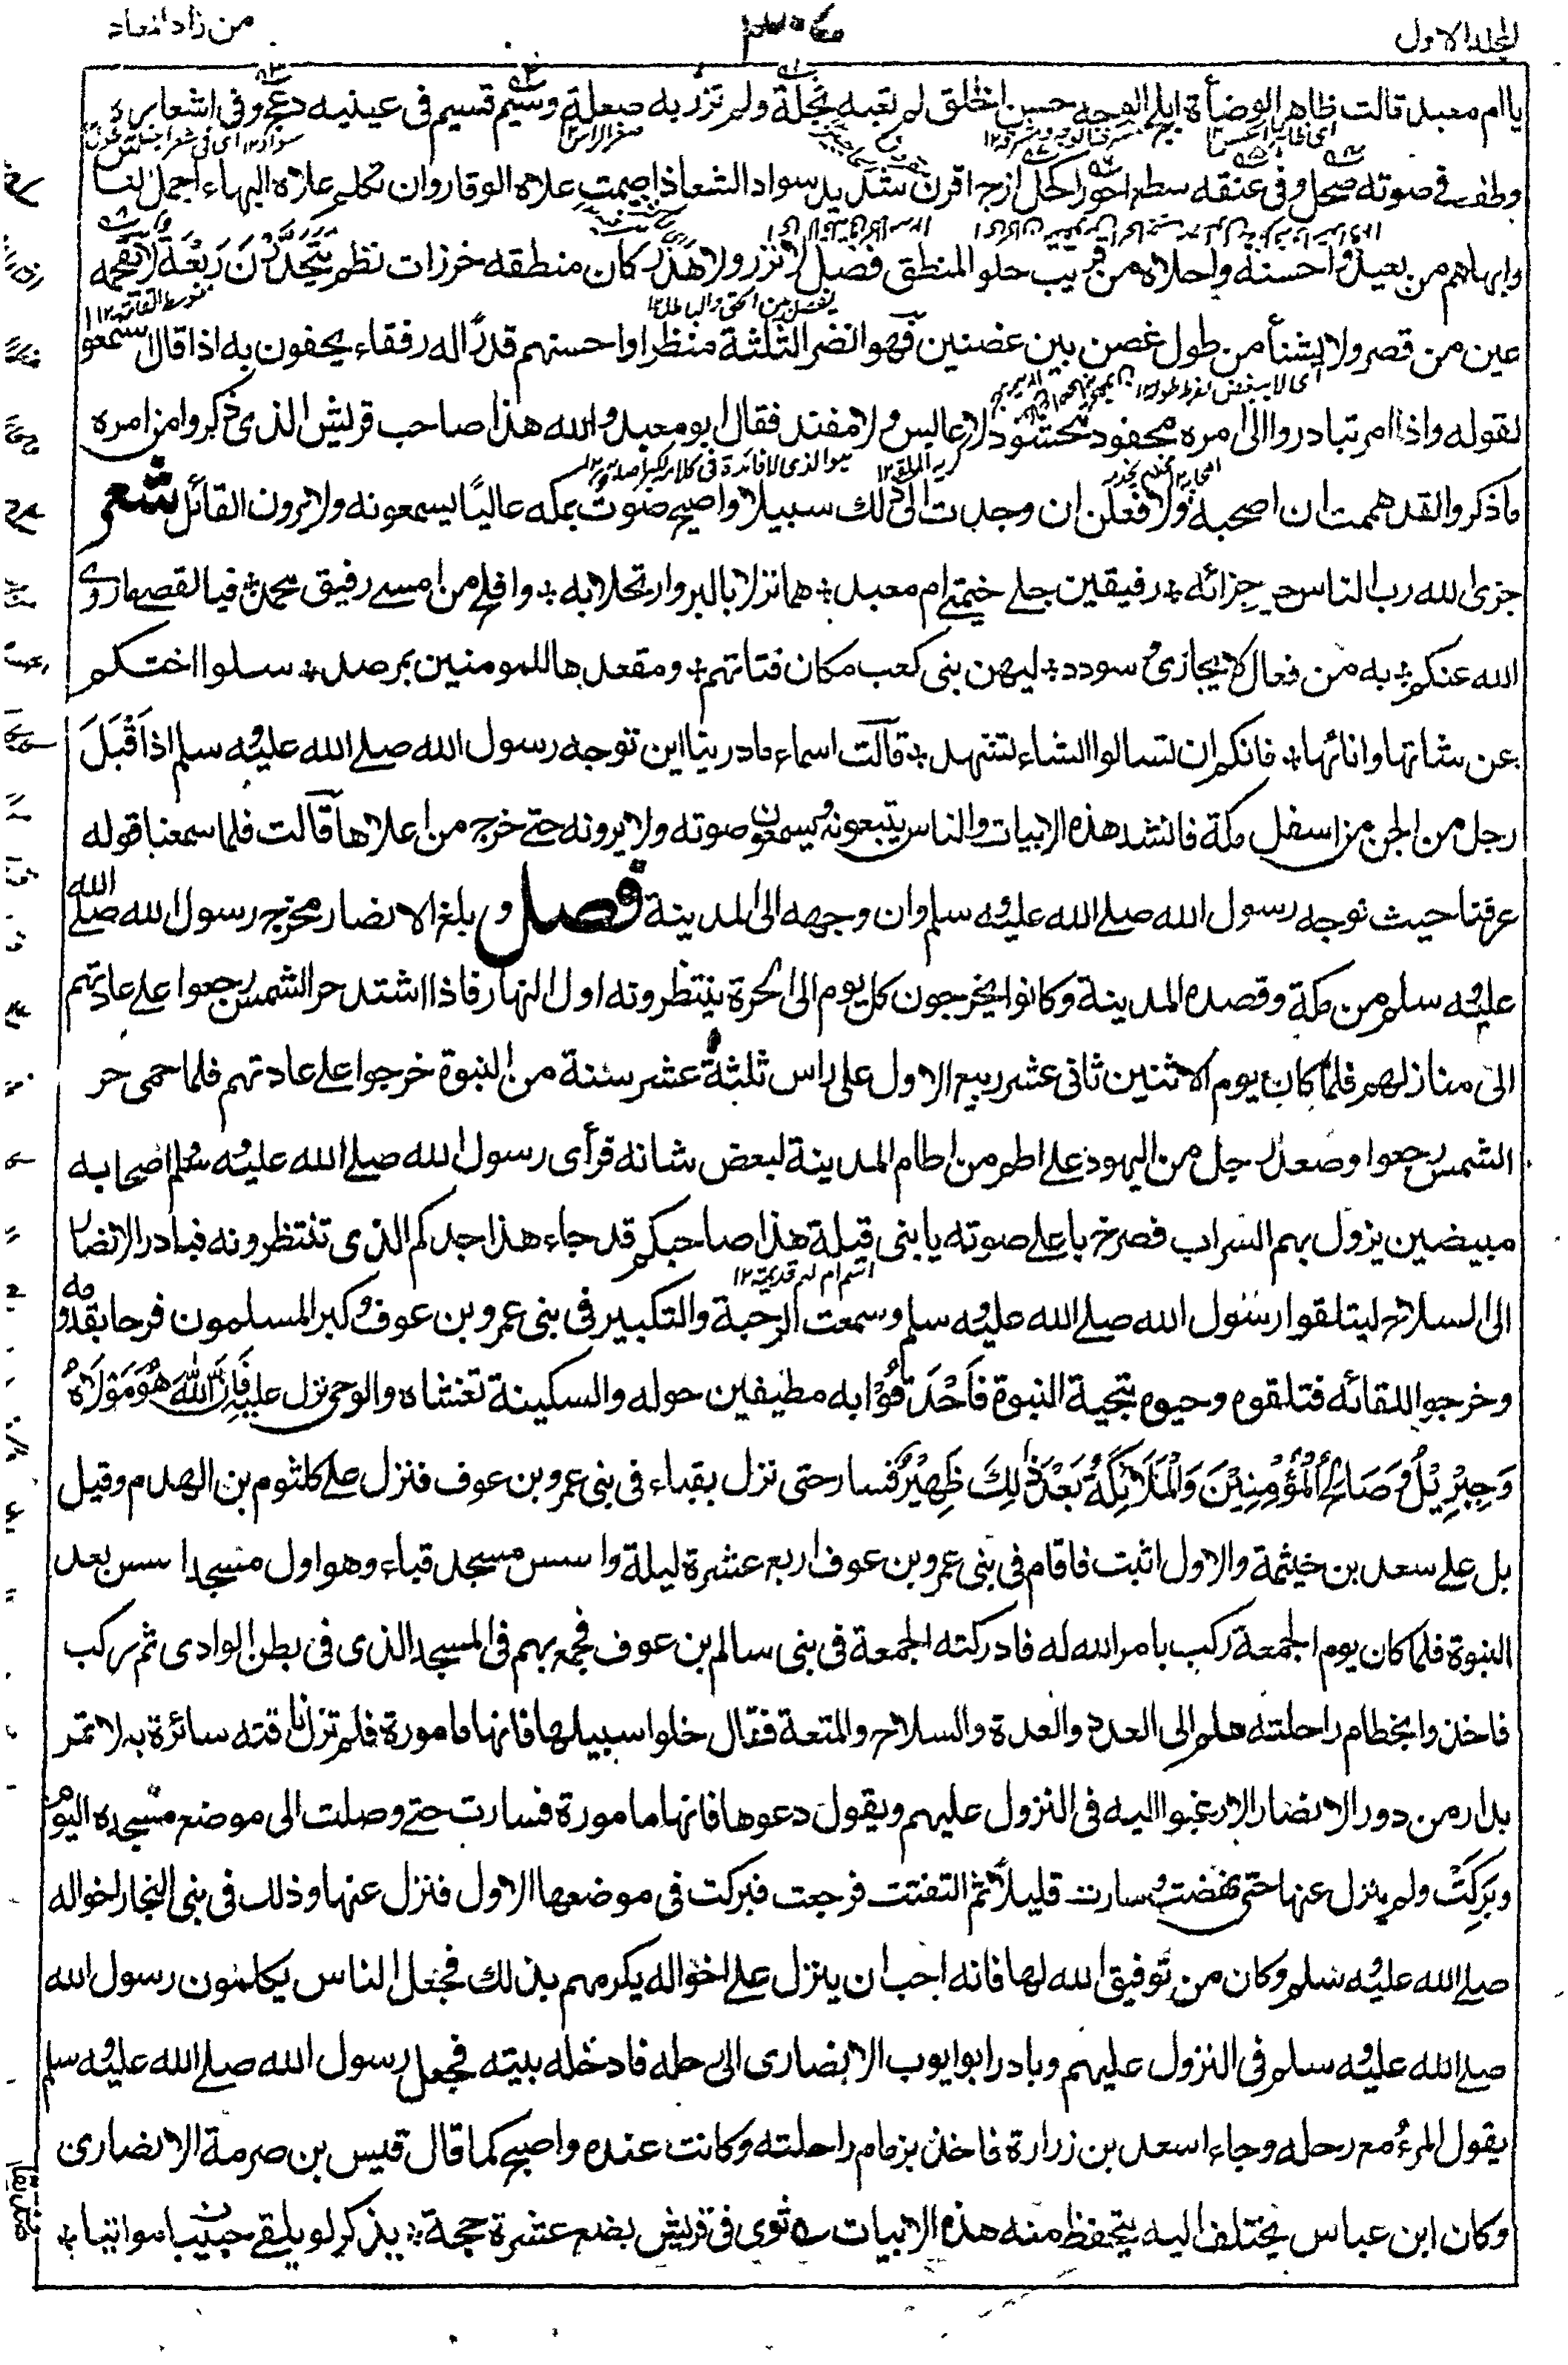 المجلد الاول
من زاد المعاد
يا ام معبد قالت ظاهر الوضأة ابلج الوجه حسن الخلق لم تعبه ثجلة ولم تزر به صعلة وسيم قسيم فى عينيه دعج وفى اشعاره
وطف فے صوته صحل وفى عنقه سطع احور اكحل ازج اقرن شديد سواد الشعر اذا صمت علاه الوقار وان تكلم علاه البهاء اجمل الناس
وابهاهم من بعيد واحسنه واحلاه من قريب حلو المنطق فصل لا نزر ولا هذر كان منطقه خرزات نظم يتحدرن ربعة لا تقحمه
عين من قصر ولا يشنأ من طول غصن بين غصنين فهو انضر الثلثة منظرا واحسنهم قدرا له رفقاء يحفون به اذا قال سمعوا
لقوله واذا امر تبادروا الى امره محفود محشود لا عابس ولا مفند فقال ابو معبد والله هذا صاحب قريش الذى ذكروا من امره
ما ذكروا لقد هممت ان اصحبه ولا فعلن ان وجدت الى ذلك سبيلا واصبح صوت بمكه عاليًا يسمعونه ولا يرون القائل شعر
جزى الله رب الناس خير جزائه ٭ رفيقين حلے خيمتے ام معبد ٭ هما نزلا بالبر وارتحلا به ٭ وافلح من امسے رفيق محمد ٭ فيا لقصے ما زوى
الله عنكم ٭ به من فعال لا يجازى وسودد ٭ ليهن بنى كعب مكان فتاتهم ٭ ومقعدها للمومنين بمرصد ٭ سلوا اختكم
عن شاتها وانائها ٭ فانكم ان تسالوا الشاء تشهد ٭ قالت اسماء ما درينا اين توجه رسول الله صلے الله عليه وسلم اذ اَقْبَلَ
رجل من الجن من اسفل مكة فانشد هذه الابيات والناس يتبعونه ويسمعون صوته ولا يرونه حتے خرج من اعلاها قالت فلما سمعنا قوله
عرفنا حيث توجه رسول الله صلے الله عليه وسلم وان وجهه الى المدينة فصل وبلغ الانصار مخرج رسول الله صلے الله
عليه وسلم من مكة وقصده المدينة وكانوا يخرجون كل يوم الى الحرة ينتظرونه اول النهار فاذا اشتد حر الشمس رجعوا علے عادتهم
الى منازلهم فلما كان يوم الاثنين ثانى عشر ربيع الاول على راس ثلثة عشر سنة من النبوة خرجوا علے عادتهم فلما حمى حر
الشمس رجعوا وصعد رجل من اليهود علے اطم من اطام المدينة لبعض شانه فرأى رسول الله صلے الله عليه وسلم واصحابه
مبيضين يزول بهم السراب فصرخ باعلے صوته يا بنى قيلة هذا صاحبكم قد جاء هذا جدكم الذى تنتظرونه فبادر الانصار
الى السلاح ليتلقوا رسول الله صلے الله عليه وسلم وسمعت الرجة والتكبير فى بنى عمرو بن عوف وكبر المسلمون فرحا بقدومه
وخرجوا للقائه فتلقوه وحيوه بتحية النبوة فاَحْدَقُوْا به مطيفين حوله والسكينة تغشاه والوحى نزل عليه فَاِنَّ اللّٰهَ هُوَ مَوْلَاهُ
وَجِبْرِيْلُ وَصَالِحُ الْمُؤْمِنِيْنَ وَالْمَلَائِكَةُ بَعْدَ ذٰلِكَ ظَهِيْرٌ فسار حتى نزل بقباء فى بنى عمرو بن عوف فنزل علے كلثوم بن الهدم وقيل
بل علے سعد بن خيثمة والاول اثبت فاقام فى بنى عمرو بن عوف اربع عشرة ليلة واسس مسجد قباء وهو اول مسجد اسس بعد
النبوة فلما كان يوم الجمعة ركب بامر الله له فادركته الجمعة فى بنى سالم بن عوف فجمع بهم فى المسجد الذى فى بطن الوادى ثم ركب
فاخذوا بخطام راحلته هلم الى العدد والعدة والسلاح والمنعة فقال خلوا سبيلها فانها مامورة فلم تزل ناقته سائرة به لا تمر
بدار من دور الانصار الا رغبوا اليه فى النزول عليهم ويقول دعوها فانها مامورة فسارت حتے وصلت الى موضع مسجده اليوم
وبَرَكَتْ ولم ينزل عنها حتى نهضت وسارت قليلاً ثم التفتت فرجعت فبركت فى موضعها الاول فنزل عنها وذلك فى بنى النجار اخواله
صلے الله عليه وسلم وكان من توفيق الله لها فانه احب ان ينزل علے اخواله يكرمهم بذلك فجعل الناس يكلمون رسول الله
صلے الله عليه وسلم فى النزول عليهم وبادر ابو ايوب الانصارى الى رحله فادخله بيته فجعل رسول الله صلے الله عليه وسلم
يقول المرءُ مع رحله وجاء اسعد بن زرارة فاخذ بزمام راحلته وكانت عنده واصبح كما قال قيس بن صرمة الانصارى
وكان ابن عباس يختلف اليه يتحفظ منه هذه الابيات ؎ ثوى فى قريش بضع عشرة حجة ٭ يذكر لو يلقے حبيبا مواتيا ٭